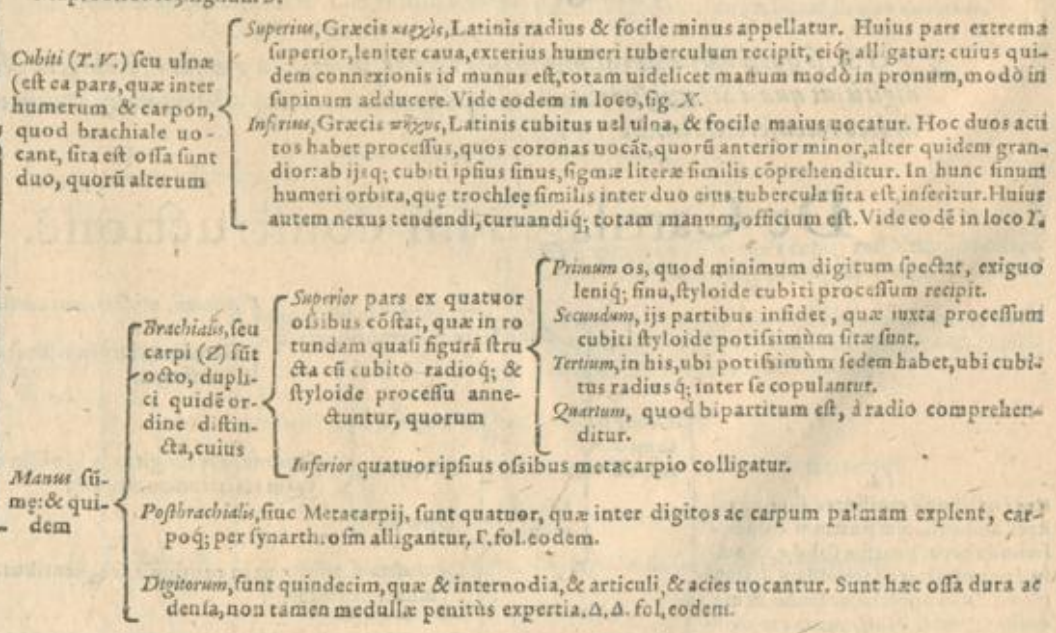 Cubiti (T.V.) seu ulnæ
(est ea pars, quæ inter
humerum & carpon,
quod brachiale uo-
cant, sita est ossa sunt
duo, quorũ alterum
Superius, Græcis κερκὶς, Latinis radius & focile minus appellatur. Huius pars extrema
superior, leniter caua, exterius humeri tuberculum recipit, eiq; alligatur: cuius qui-
dem connexionis id munus est, totam uidelicet manum modò in pronum, modò in
supinum adducere. Vide eodem in loco, fig. X.
Inferius, Græcis πῆχυς, Latinis cubitus uel ulna, & focile maius uocatur. Hoc duos acu
tos habet processus, quos coronas uocãt, quorũ anterior minor, alter quidem gran-
dior: ab ijsq; cubiti ipsius sinus, sigmæ literæ similis cõprehenditur. In hunc sinum
humeri orbita, quę trochleę similis inter duo eius tubercula sita est, inseritur. Huius
autem nexus tendendi, curuandiq; totam manum, officium est. Vide eodẽ in loco Y.
Manus sũ-
mę: & qui-
dem
Brachialis, seu
carpi (Z) sũt
octo, dupli-
ci quidẽ or-
dine distin-
cta, cuius
Superior pars ex quatuor
ossibus cõstat, quæ in ro
tundam quasi figurã stru
cta cũ cubito radioq; &
styloide processu anne-
ctuntur, quorum
Primum os, quod minimum digitum spectat, exiguo
leniq; sinu, styloide cubiti processum recipit.
Secundum, ijs partibus insidet, quæ iuxta processum
cubiti styloide potissimùm sitæ sunt.
Tertium, in his, ubi potissimùm sedem habet, ubi cubi-
tus radiusq; inter se copulantur.
Quartum, quod bipartitum est, à radio comprehen-
ditur.
Inferior quatuor ipsius ossibus metacarpio colligatur.
Postbrachialis, siue Metacarpij, sunt quatuor, quæ inter digitos ac carpum palmam explent, car-
poq; per synarthrosin alligantur, Γ. fol. eodem.
Digitorum, sunt quindecim, quæ & internodia, & articuli, & acies uocantur. Sunt hæc ossa dura ac
densa, non tamen medullæ penitùs expertia, Δ, Δ. fol, eodem.